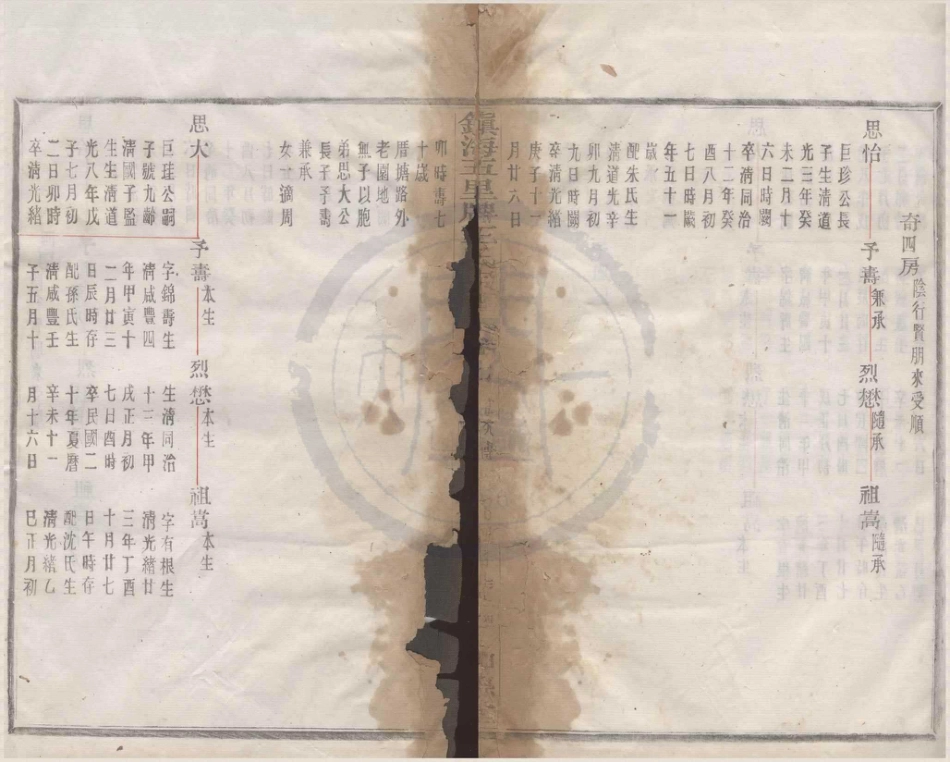 奇四房陰行賢朋來受順
思怡
巨珍公長
子生清道
光三年癸
未二月十
六日時闕
卒清同治
十二年癸
酉八月初
七日時闕
年五十一
歲
配朱氏生
清道光辛
卯九月初
九日時闕
卒清光緒
庚子十二
月廿六日
予壽兼承
烈懋隨承
祖嵩隨承
鎮海五里牌
卯時壽七
十歲
厝墧路外
老園地
無子以胞
弟思大公
長子予壽
兼承
女一適周
思大
巨珪公嗣
子號九齡
清國子監
生生清道
光八年戊
子七月初
二日卯時
卒清光緒
予壽本生
字錦壽生
清咸豐四
年甲寅十
二月廿三
日辰時存
配孫氏生
清咸豐壬
子五月十
烈懋本生
生清同治
十三年甲
戌正月初
七日酉時
卒民國二
十年夏曆
辛未十一
月十六日
祖嵩本生
字有根生
清光緒廿
三年丁酉
十月廿七
日午時存
配沈氏生
清光緒乙
巳正月初